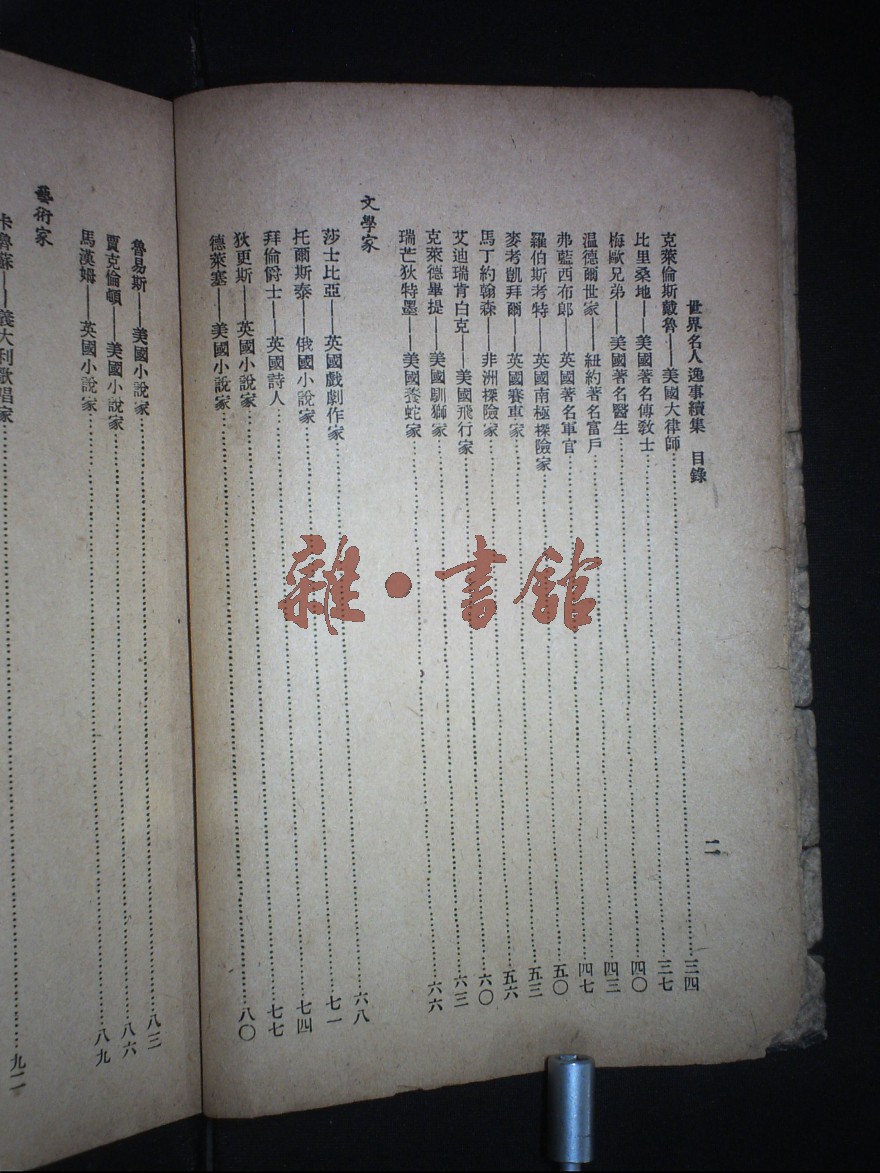 世界名人逸事續集　目錄
克萊倫斯戴魯——美國大律師……三四
比里桑地——美國著名傳教士……三七
梅歐兄弟——美國著名醫生……四〇
温德爾世家——紐約著名富戶……四三
弗藍西布郎——英國著名軍官……四七
羅伯斯考特——英國南極探險家……五〇
麥考凱拜爾——英國賽車家……五三
馬丁約翰森——非洲探險家……五六
艾迪瑞肯白克——美國飛行家……六〇
克萊德畢提——美國馴獅家……六三
瑞芒狄特墨——美國養蛇家……六六
文學家
莎士比亞——英國戲劇作家……六八
托爾斯泰——俄國小說家……七一
拜倫爵士——英國詩人……七四
狄更斯——英國小說家……七七
德萊塞——美國小說家……八〇
二
魯易斯——美國小說家……八三
賈克倫頓——美國小說家……八六
馬漢姆——英國小說家……八九
藝術家
卡魯蘇——義大利歌唱家……九二
雜·書館